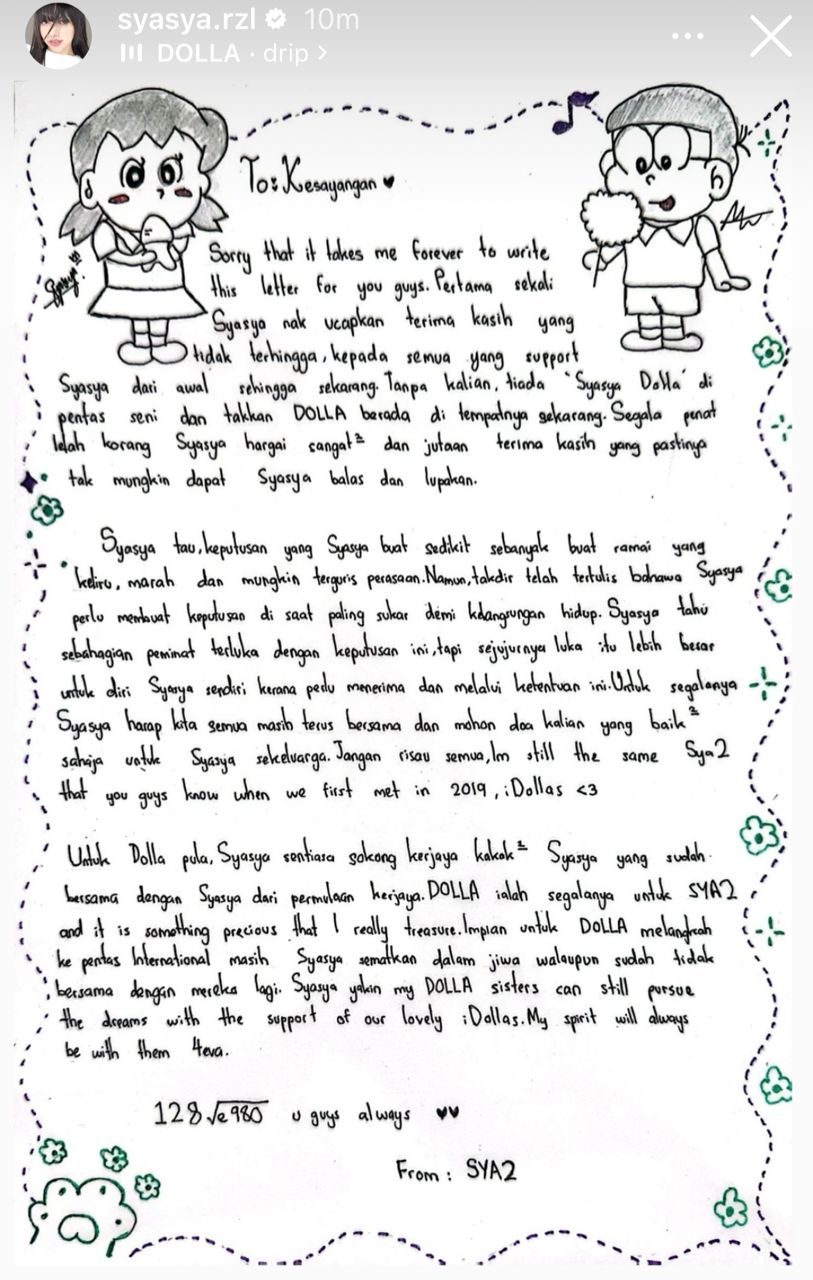 syasya.rzl 10m
DOLLA · drip >
To: Kesayangan ♥
Sorry that it takes me forever to write
this letter for you guys. Pertama sekali
Syasya nak ucapkan terima kasih yang
tidak terhingga, kepada semua yang support
Syasya dari awal sehingga sekarang. Tanpa kalian, tiada "Syasya Dolla" di
pentas seni dan takkan DOLLA berada di tempatnya sekarang. Segala penat
lelah korang Syasya hargai sangat² dan jutaan terima kasih yang pastinya
tak mungkin dapat Syasya balas dan lupakan.
Syasya tau, keputusan yang Syasya buat sedikit sebanyak buat ramai yang
keliru, marah dan mungkin terguris perasaan. Namun, takdir telah tertulis bahawa Syasya
perlu membuat keputusan di saat paling sukar demi kelangsungan hidup. Syasya tahu
sebahagian peminat terluka dengan keputusan ini, tapi sejujurnya luka itu lebih besar
untuk diri Syasya sendiri kerana perlu menerima dan melalui ketentuan ini. Untuk segalanya
Syasya harap kita semua masih terus bersama dan mohon doa kalian yang baik²
sahaja untuk Syasya sekeluarga. Jangan risau semua, Im still the same Sya2
that you guys know when we first met in 2019, iDollas <3
Untuk Dolla pula, Syasya sentiasa sokong kerjaya kakak² Syasya yang sudah
bersama dengan Syasya dari permulaan kerjaya. DOLLA ialah segalanya untuk SYA2
and it is something precious that I really treasure. Impian untuk DOLLA melangkah
ke pentas International masih Syasya sematkan dalam jiwa walaupun sudah tidak
bersama dengan mereka lagi. Syasya yakin my DOLLA sisters can still pursue
the dreams with the support of our lovely iDollas. My spirit will always
be with them 4eva.
128√e980 u guys always ♥♥
From: SYA2